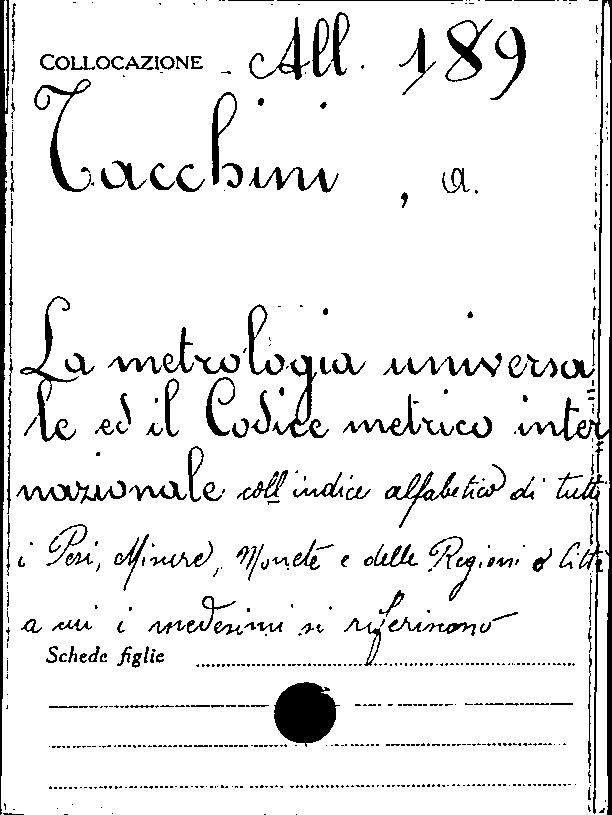 COLLOCAZIONE - All. 189
Tacchini, a.
La metrologia universa
le ed il Codice metrico inter
nazionale coll'indice alfabetico di tutti
i Pesi, Misure, Monete e delle Regioni o Città
a cui i medesimi si riferiscono
Schede figlie